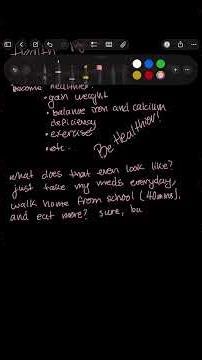 Health
become healthier:
• gain weight
• balance iron and calcium
deficiency
• exercise
• etc.
Be Healthier!
what does that even look like?
just take my meds everyday,
walk home from school (40mins),
and eat more? sure, bu